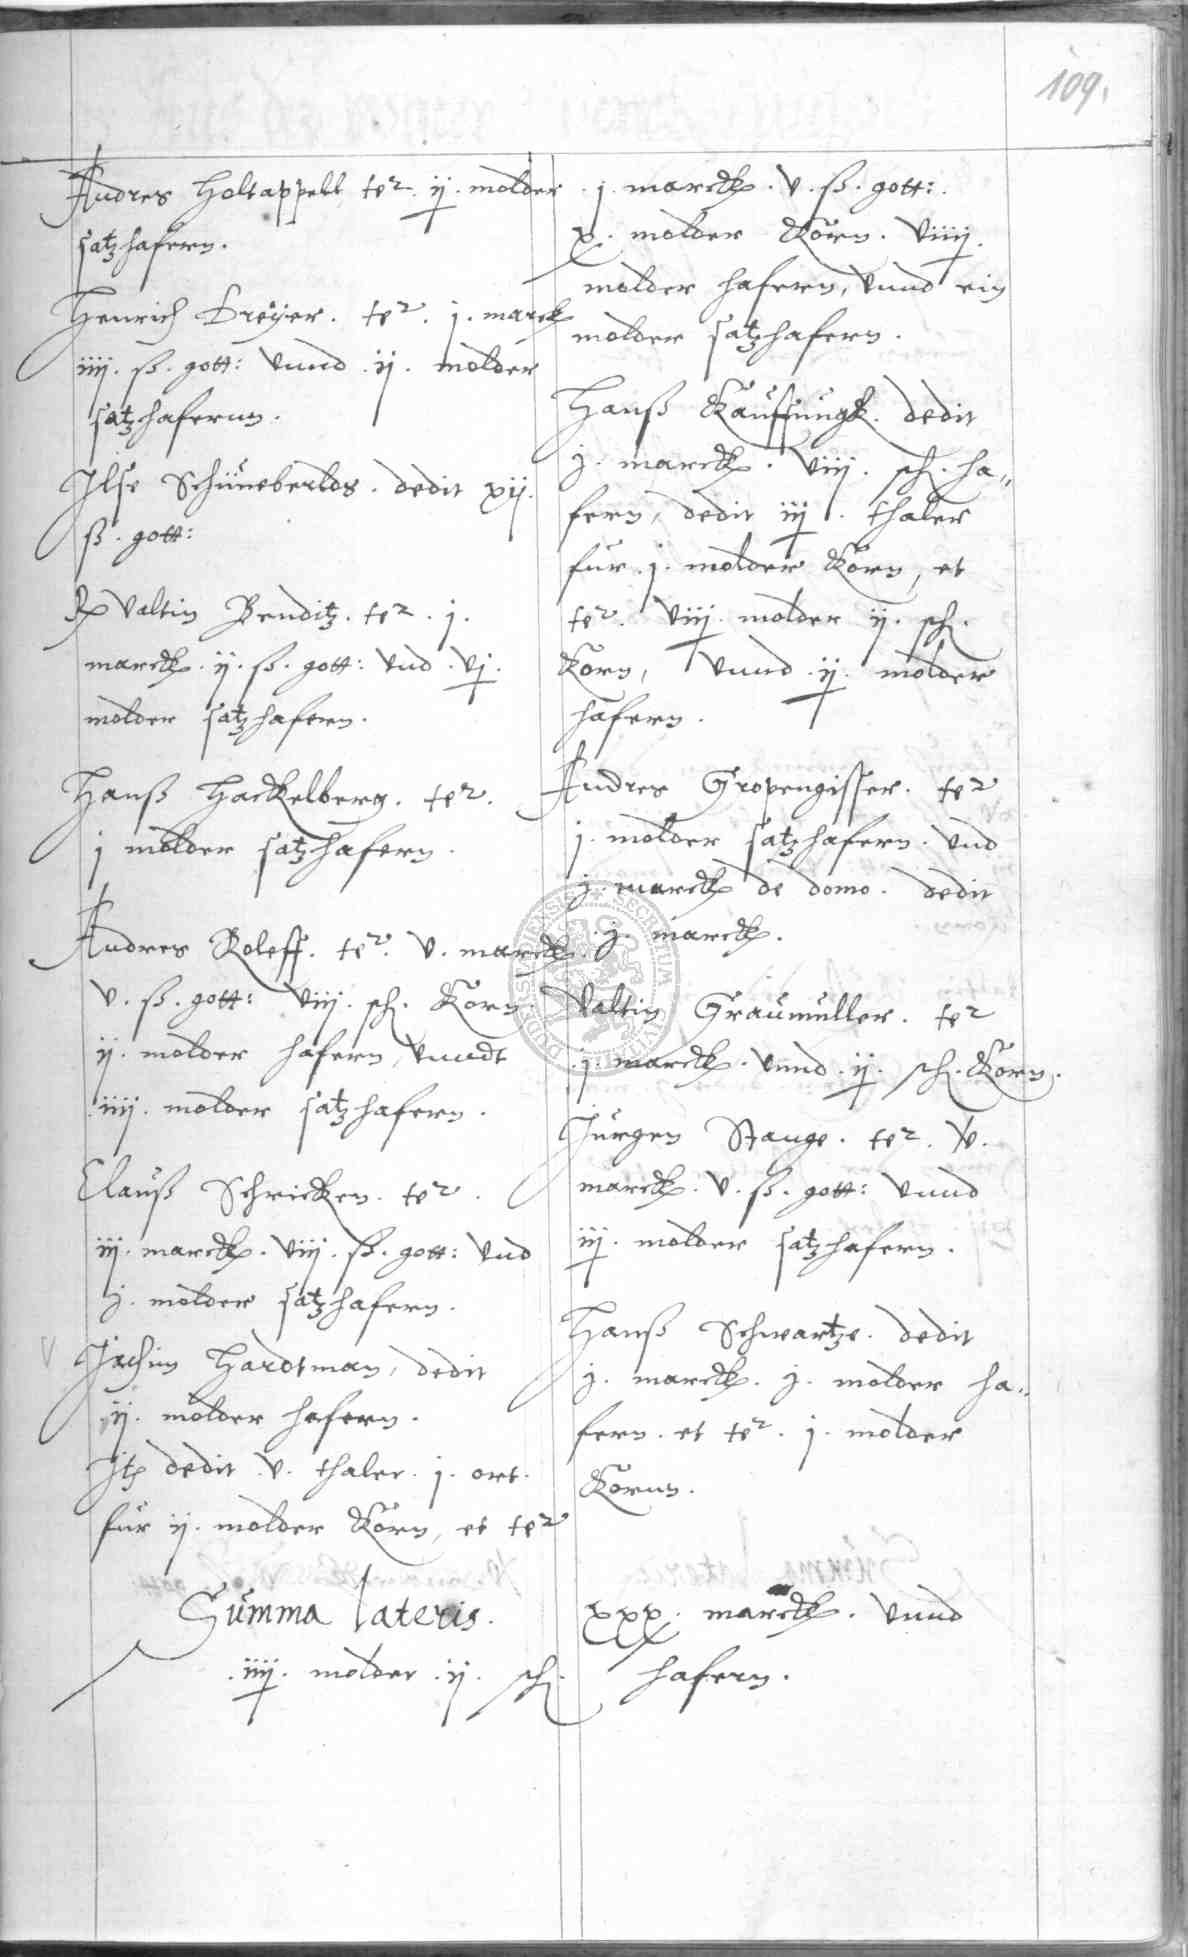 109.
Andres Holtappell ter. ij. molder
satzhafern.
Henrich Dreÿer. ter. j. marck
iiij. ß. gott: vnnd ij. molder
satzhafernn.
Ilse Schüneberlds. dedit xij.
ß. gott:
Valtin Benditz. ter. j.
marck. ij. ß. gott: vnd. vj.
molder satzhafern.
Hanß Hackelberg. ter.
j molder satzhafern.
Andres Roleff. ter. v. marck.
v. ß. gott: viij. sch. Korn
ij. molder hafern, vnndt
iiij. molder satzhafern.
Clauß Schricken. ter.
iij. marck. viij. ß. gott: vnd
j. molder satzhafern.
Jachim Hardtman, dedit
ij. molder hafern.
Itz dedit v. thaler. j. ort.
für ij. molder Korn, et ter
j. marck. v. ß. gott:
x. molder Korn. viiij.
molder hafern, vnnd ein
molder satzhafern.
Hanß Kauffüngk. dedit
j. marck. viij. sch. ha„
fern, dedit iij. thaler
für j. molder Korn, et
ter. viij. molder ij. sch.
Korn, vnnd ij. molder
hafern.
Andres Gropengisser. ter
j. molder satzhafern. vnd
j. marck de domo. dedit
j. marck.
Valtin Graumüller. ter
j. marck. vnnd ij. sch. Korn.
Jürgen Stange. ter. v.
marck. v. ß. gott: vnnd
iij. molder satzhafern.
Hanß Schwartze. dedit
j. marck. j. molder ha„
fern. et ter. j. molder
Kornn.
Summa lateris. xxx. marck. vnnd
iiij. molder ij. sch. hafern.